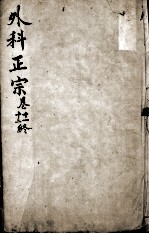 外科正宗
卷十二終